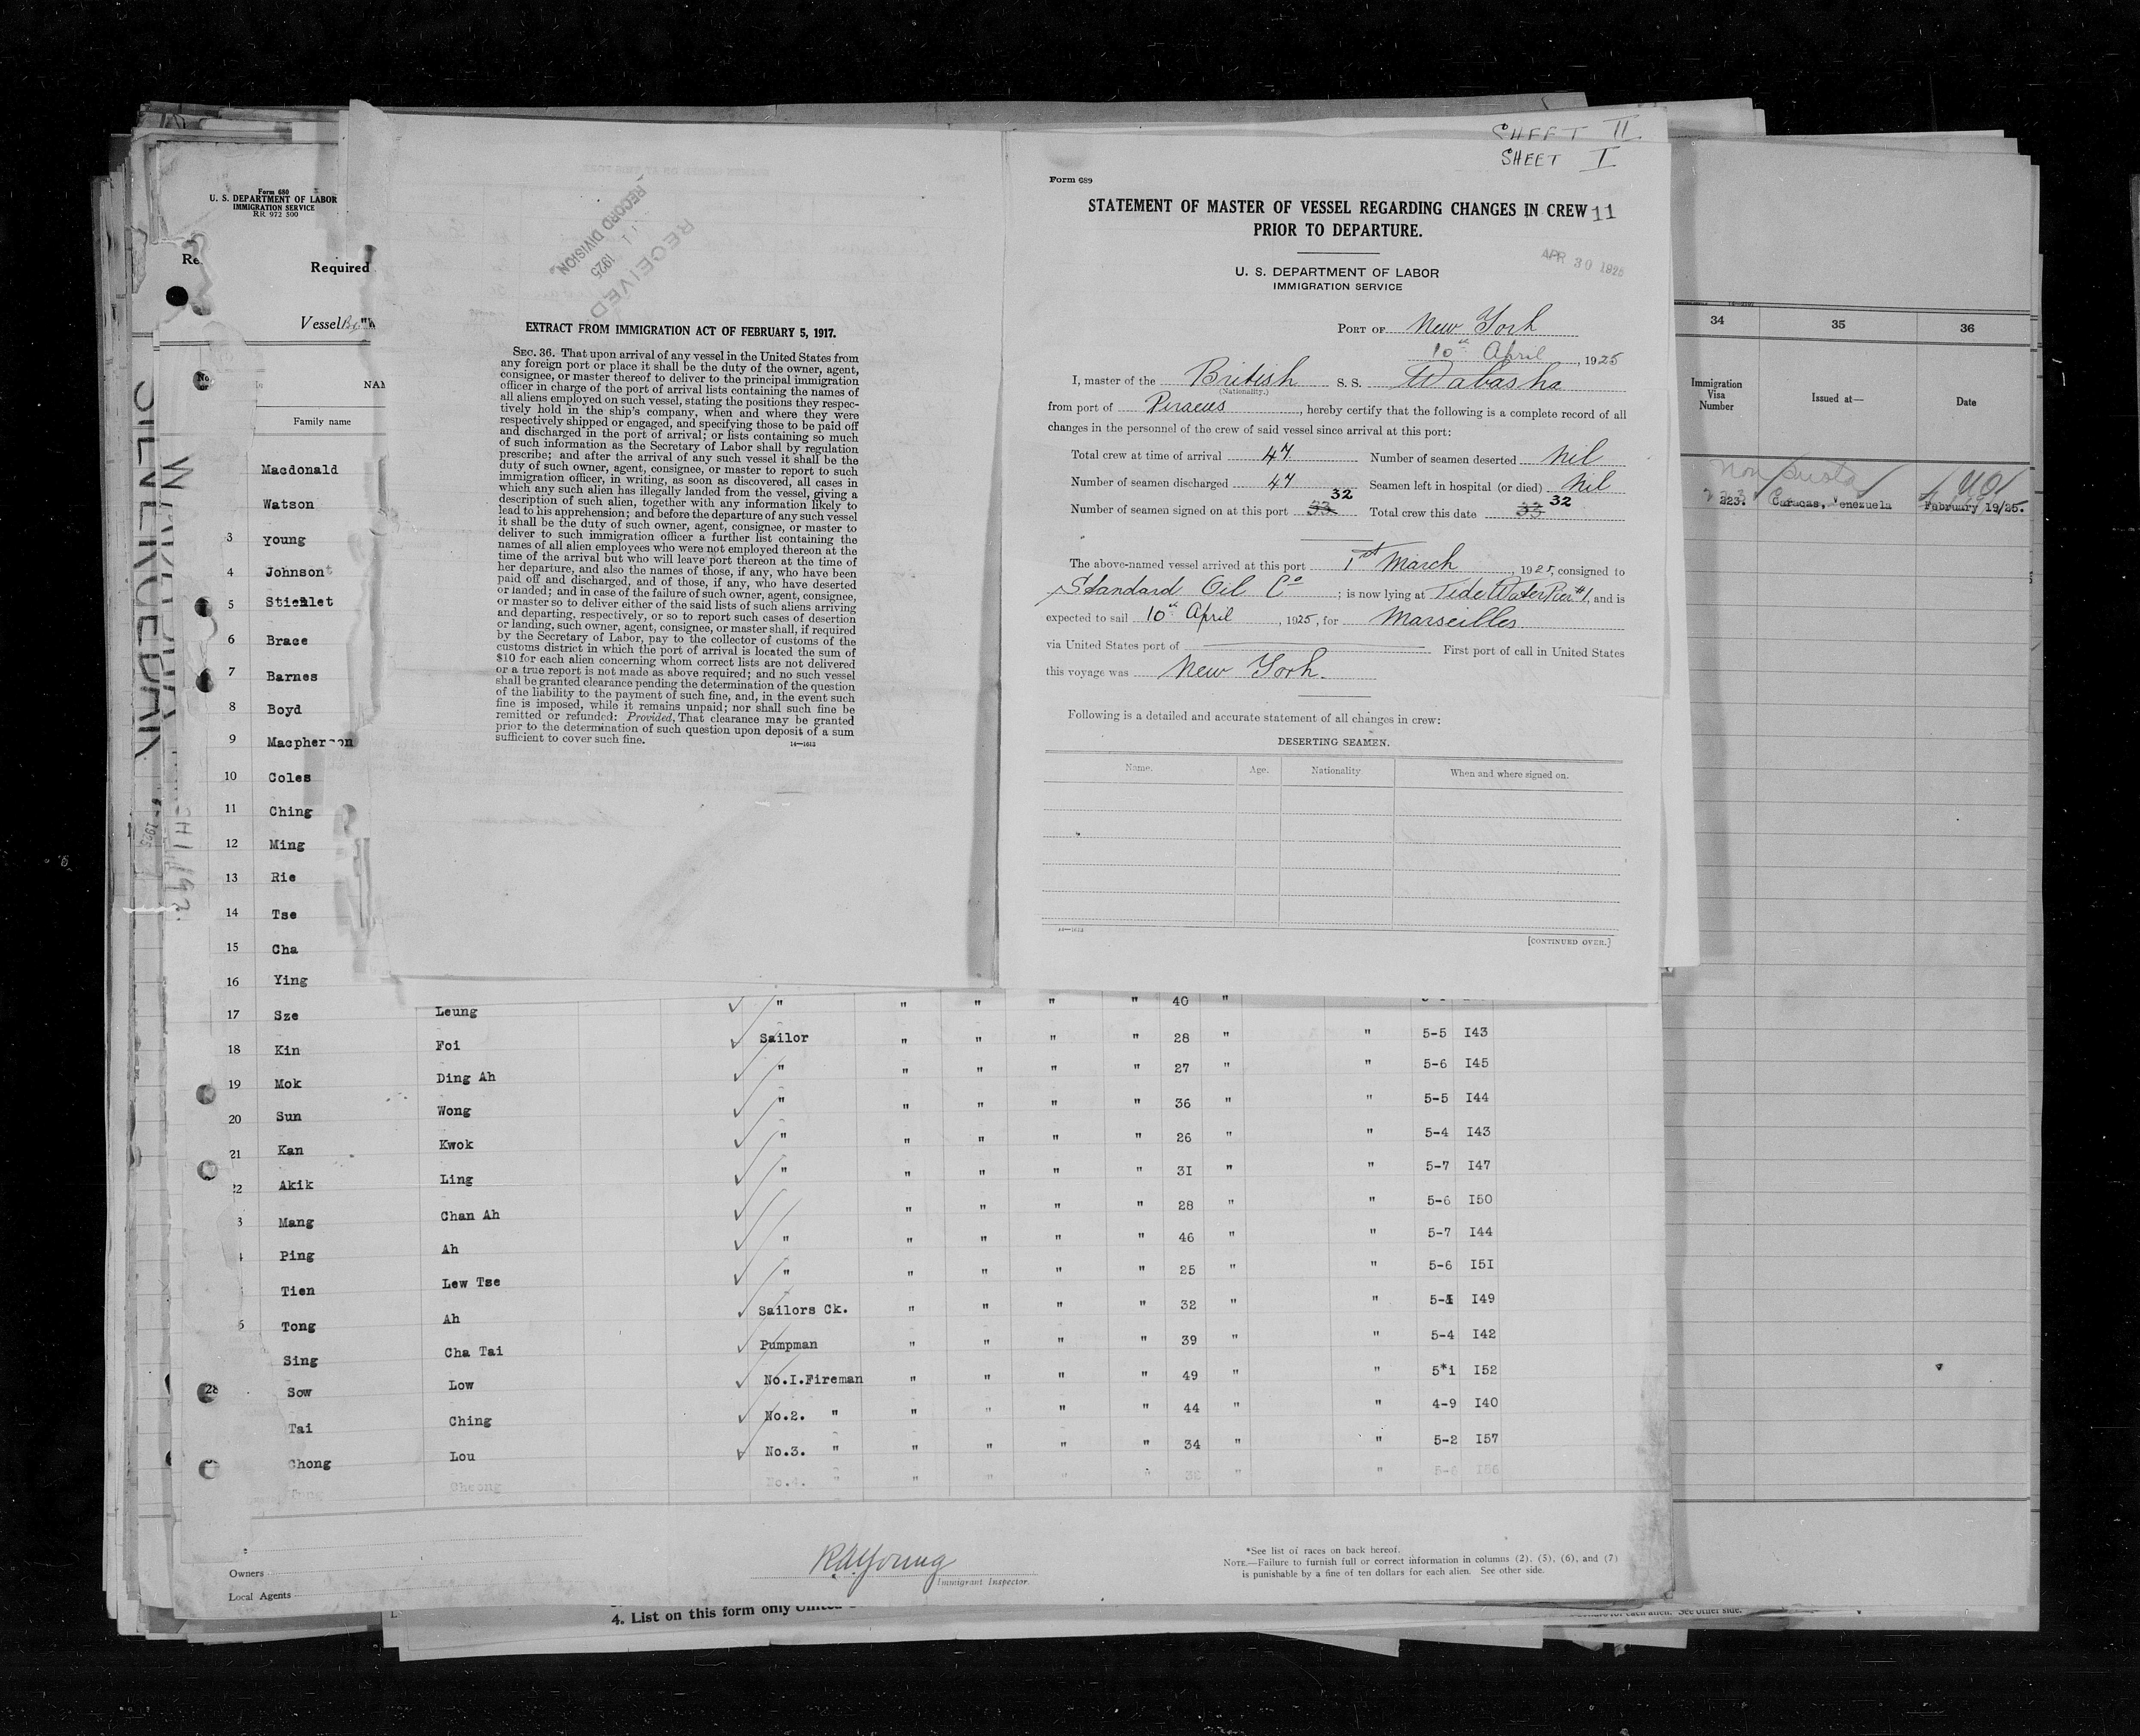 SHEET II
SHEET I
Form 689
STATEMENT OF MASTER OF VESSEL REGARDING CHANGES IN CREW 11
PRIOR TO DEPARTURE.
APR 30 1925
U. S. DEPARTMENT OF LABOR
IMMIGRATION SERVICE
PORT OF New York
10th April, 1925
I, master of the British S. S. Wabasha
(Nationality.)
from port of Piraeus, hereby certify that the following is a complete record of all
changes in the personnel of the crew of said vessel since arrival at this port:
Total crew at time of arrival 47 Number of seamen deserted Nil
Number of seamen discharged 47 Seamen left in hospital (or died) Nil
Number of seamen signed on at this port 33 32 Total crew this date 33 32
The above-named vessel arrived at this port 1st March, 1925, consigned to
Standard Oil Co; is now lying at Tide Water Pier #1, and is
expected to sail 10th April, 1925, for Marseilles
via United States port of First port of call in United States
this voyage was New York.
Following is a detailed and accurate statement of all changes in crew:
DESERTING SEAMEN.
Name. Age. Nationality. When and where signed on.
14—1613
[CONTINUED OVER.]
RECEIVED
1925
RECORD DIVISION
EXTRACT FROM IMMIGRATION ACT OF FEBRUARY 5, 1917.
SEC. 36. That upon arrival of any vessel in the United States from
any foreign port or place it shall be the duty of the owner, agent,
consignee, or master thereof to deliver to the principal immigration
officer in charge of the port of arrival lists containing the names of
all aliens employed on such vessel, stating the positions they respec-
tively hold in the ship's company, when and where they were
respectively shipped or engaged, and specifying those to be paid off
and discharged in the port of arrival; or lists containing so much
of such information as the Secretary of Labor shall by regulation
prescribe; and after the arrival of any such vessel it shall be the
duty of such owner, agent, consignee, or master to report to such
immigration officer, in writing, as soon as discovered, all cases in
which any such alien has illegally landed from the vessel, giving a
description of such alien, together with any information likely to
lead to his apprehension; and before the departure of any such vessel
it shall be the duty of such owner, agent, consignee, or master to
deliver to such immigration officer a further list containing the
names of all alien employees who were not employed thereon at the
time of the arrival but who will leave port thereon at the time of
her departure, and also the names of those, if any, who have been
paid off and discharged, and of those, if any, who have deserted
or landed; and in case of the failure of such owner, agent, consignee,
or master so to deliver either of the said lists of such aliens arriving
and departing, respectively, or so to report such cases of desertion
or landing, such owner, agent, consignee, or master shall, if required
by the Secretary of Labor, pay to the collector of customs of the
customs district in which the port of arrival is located the sum of
$10 for each alien concerning whom correct lists are not delivered
or a true report is not made as above required; and no such vessel
shall be granted clearance pending the determination of the question
of the liability to the payment of such fine, and, in the event such
fine is imposed, while it remains unpaid; nor shall such fine be
remitted or refunded: Provided, That clearance may be granted
prior to the determination of such question upon deposit of a sum
sufficient to cover such fine.
14—1613
Form 680
U. S. DEPARTMENT OF LABOR
IMMIGRATION SERVICE
RR 972 500
Required
Vessel
No.
NAM
Family name
Macdonald
Watson
3 Young
4 Johnson
5 Stichlet
6 Brace
7 Barnes
8 Boyd
9 Macpherson
10 Coles
11 Ching
12 Ming
13 Rie
14 Tse
15 Cha
16 Ying
17 Sze Leung " " " " " 40 "
18 Kin Foi Sailor " " " " 28 " " 5-5 I43
19 Mok Ding Ah " " " " " 27 " " 5-6 I45
20 Sun Wong " " " " " 36 " " 5-5 I44
21 Kan Kwok " " " " " 26 " " 5-4 I43
22 Akik Ling " " " " " 31 " " 5-7 I47
3 Mang Chan Ah " " " " 28 " " 5-6 I50
Ping Ah " " " " " 46 " " 5-7 I44
Tien Lew Tse " " " " " 25 " " 5-6 I5I
6 Tong Ah Sailors Ck. " " " " 32 " " I49
Sing Cha Tai Pumpman " " " " 39 " " 5-4 I42
28 Sow Low No.I.Fireman " " " " 49 " " 5*1 I52
Tai Ching No.2. " " " " " 44 " " 4-9 I40
Chong Lou No.3. " " " " " 34 " " 5-2 I57
Cheong No.4. " " " " "
34 35 36
Immigration
Visa
Number
Issued at—
Date
223. Caracas, Venezuela February 19/25.
R.A. Young
Immigrant Inspector.
Owners
Local Agents
*See list of races on back hereof.
NOTE.—Failure to furnish full or correct information in columns (2), (5), (6), and (7)
is punishable by a fine of ten dollars for each alien. See other side.
4. List on this form only United
for each alien. See other side.